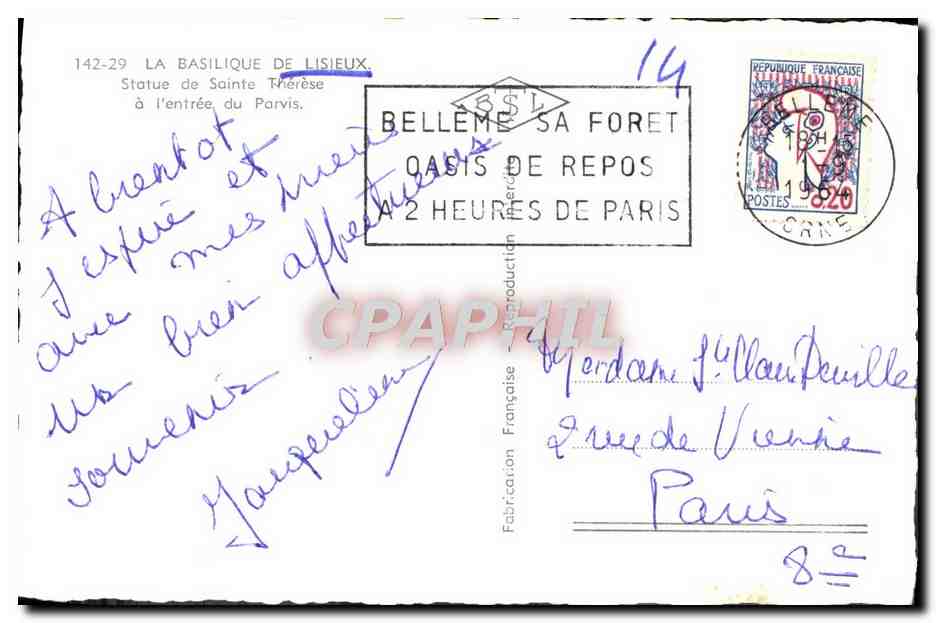 142-29 LA BASILIQUE DE LISIEUX.
Statue de Sainte Thérèse
à l'entrée du Parvis.
14
BSL
BELLEME SA FORET
OASIS DE REPOS
A 2 HEURES DE PARIS
REPUBLIQUE FRANÇAISE
POSTES 0.20
BELLEME
18H
1964
ORNE
A bientot
j'espère et
avec mes
un bien affectueux
souvenir.
Jacqueline
Fabrication Française - Reproduction interdite
CPAPHIL
Madame
2 rue de Vienne
Paris
8e